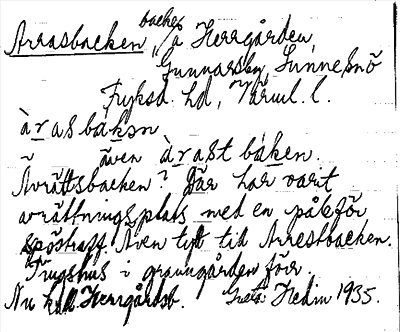 backe
Arrasbacken, på Herrgården,
Gunnarsby, Sunne snö
Fryksd. hd, Värml. l.
àrasbákən
även àrast báken.
Avrättsbacken? Här har varit
avrättningsplats med en påle för
spöstraff. Även
tid Arrestbacken.
Tingshus i granngården förr.
Nu kall. Herrgårdsb. Greta Hedin 1935.